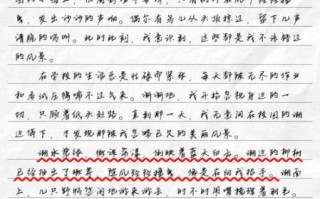 ，发出沙沙的声响。偶尔有鸟儿从头顶掠过，留下几声
清脆的鸣叫。此时此刻，我意识到，这些都是我不该错过
的风景。
在学校的生活总是忙碌而紧张，每天都被无尽的作业
和考试压得喘不过气来。渐渐地，我开始忽视身边的一
切，只顾着低头赶路。直到那一天，我无意间在校园的湖
边停下，才发现那被我忽略已久的美丽风景。
湖水碧绿，微波荡漾，倒映着蓝天白云。湖边的柳树
已经抽出了嫩芽，随风轻轻摇曳，像是在向我招手。湖面
上，几只野鸭悠闲地游来游去，时不时用嘴梳理着羽毛。